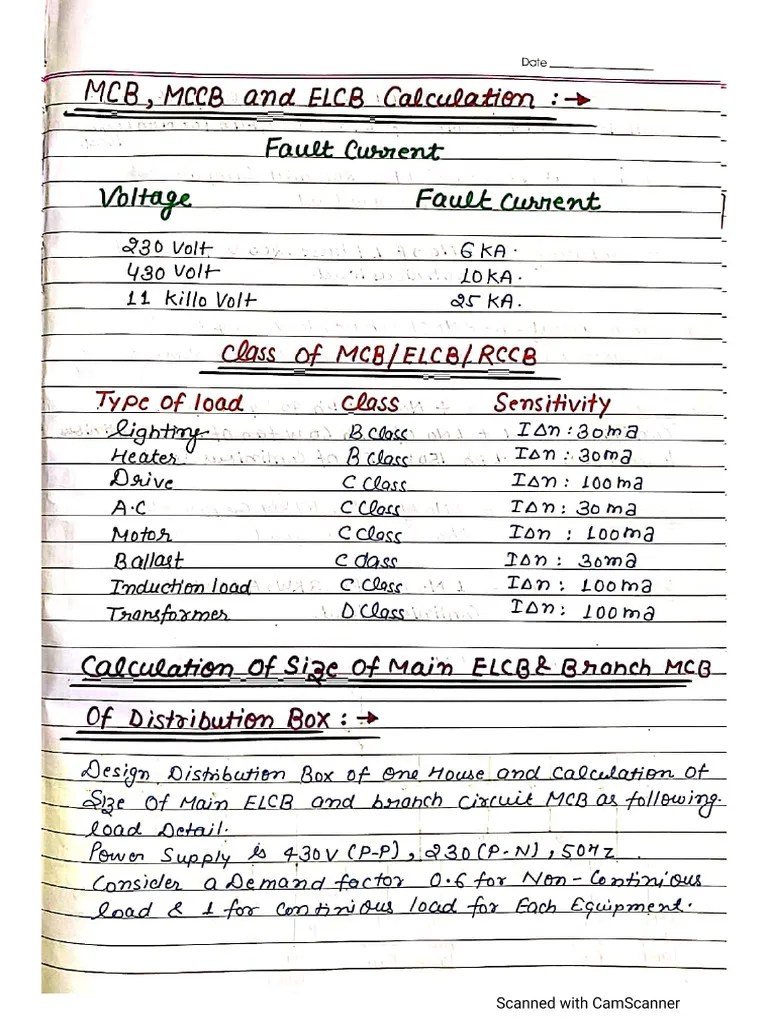 Date
MCB, MCCB and ELCB Calculation :→
Fault Current
Voltage Fault Current
230 Volt 6 KA.
430 Volt 10 KA.
11 Killo Volt 25 KA.
Class Of MCB/ELCB/RCCB
Type of load Class Sensitivity
lighting B Class IΔn : 30ma
Heater B Class IΔn : 30ma
Drive C Class IΔn : 100ma
A.C C Class IΔn : 30 ma
Motor C Class IΔn : 100ma
Ballast C Class IΔn : 30ma
Induction load C Class IΔn : 100ma
Transformer D Class IΔn : 100ma
Calculation Of Size Of Main ELCB & Branch MCB
Of Distribution Box : →
Design Distribution Box of One House and Calculation of
Size Of Main ELCB and branch Circuit MCB as following
load Detail.
Power Supply is 430V (P-P), 230 (P-N), 50Hz.
Consider a Demand factor 0.6 for Non-Continious
load & 1 for continious load for Each Equipment.
Scanned with CamScanner